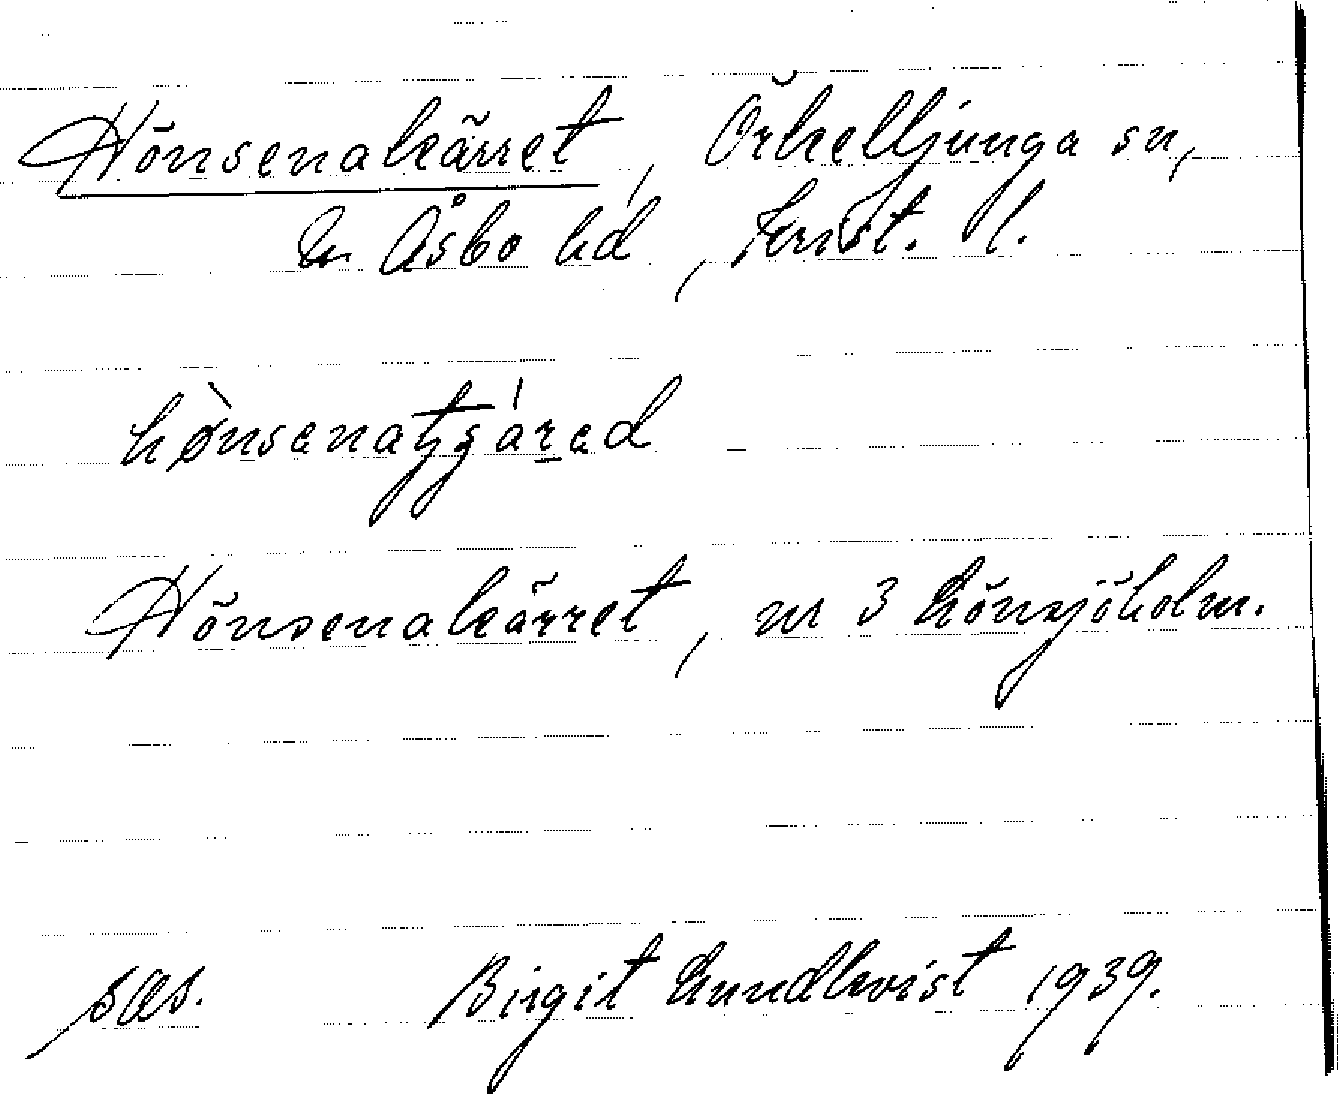 Hönsenakärret, Örkelljunga sn,
N. Åsbo hd, Krist. l.
hø̀nsenatʃáred
Hönsenakärret, nr 3 Lönsjöholm.
sas. Birgit Lundkvist 1939.